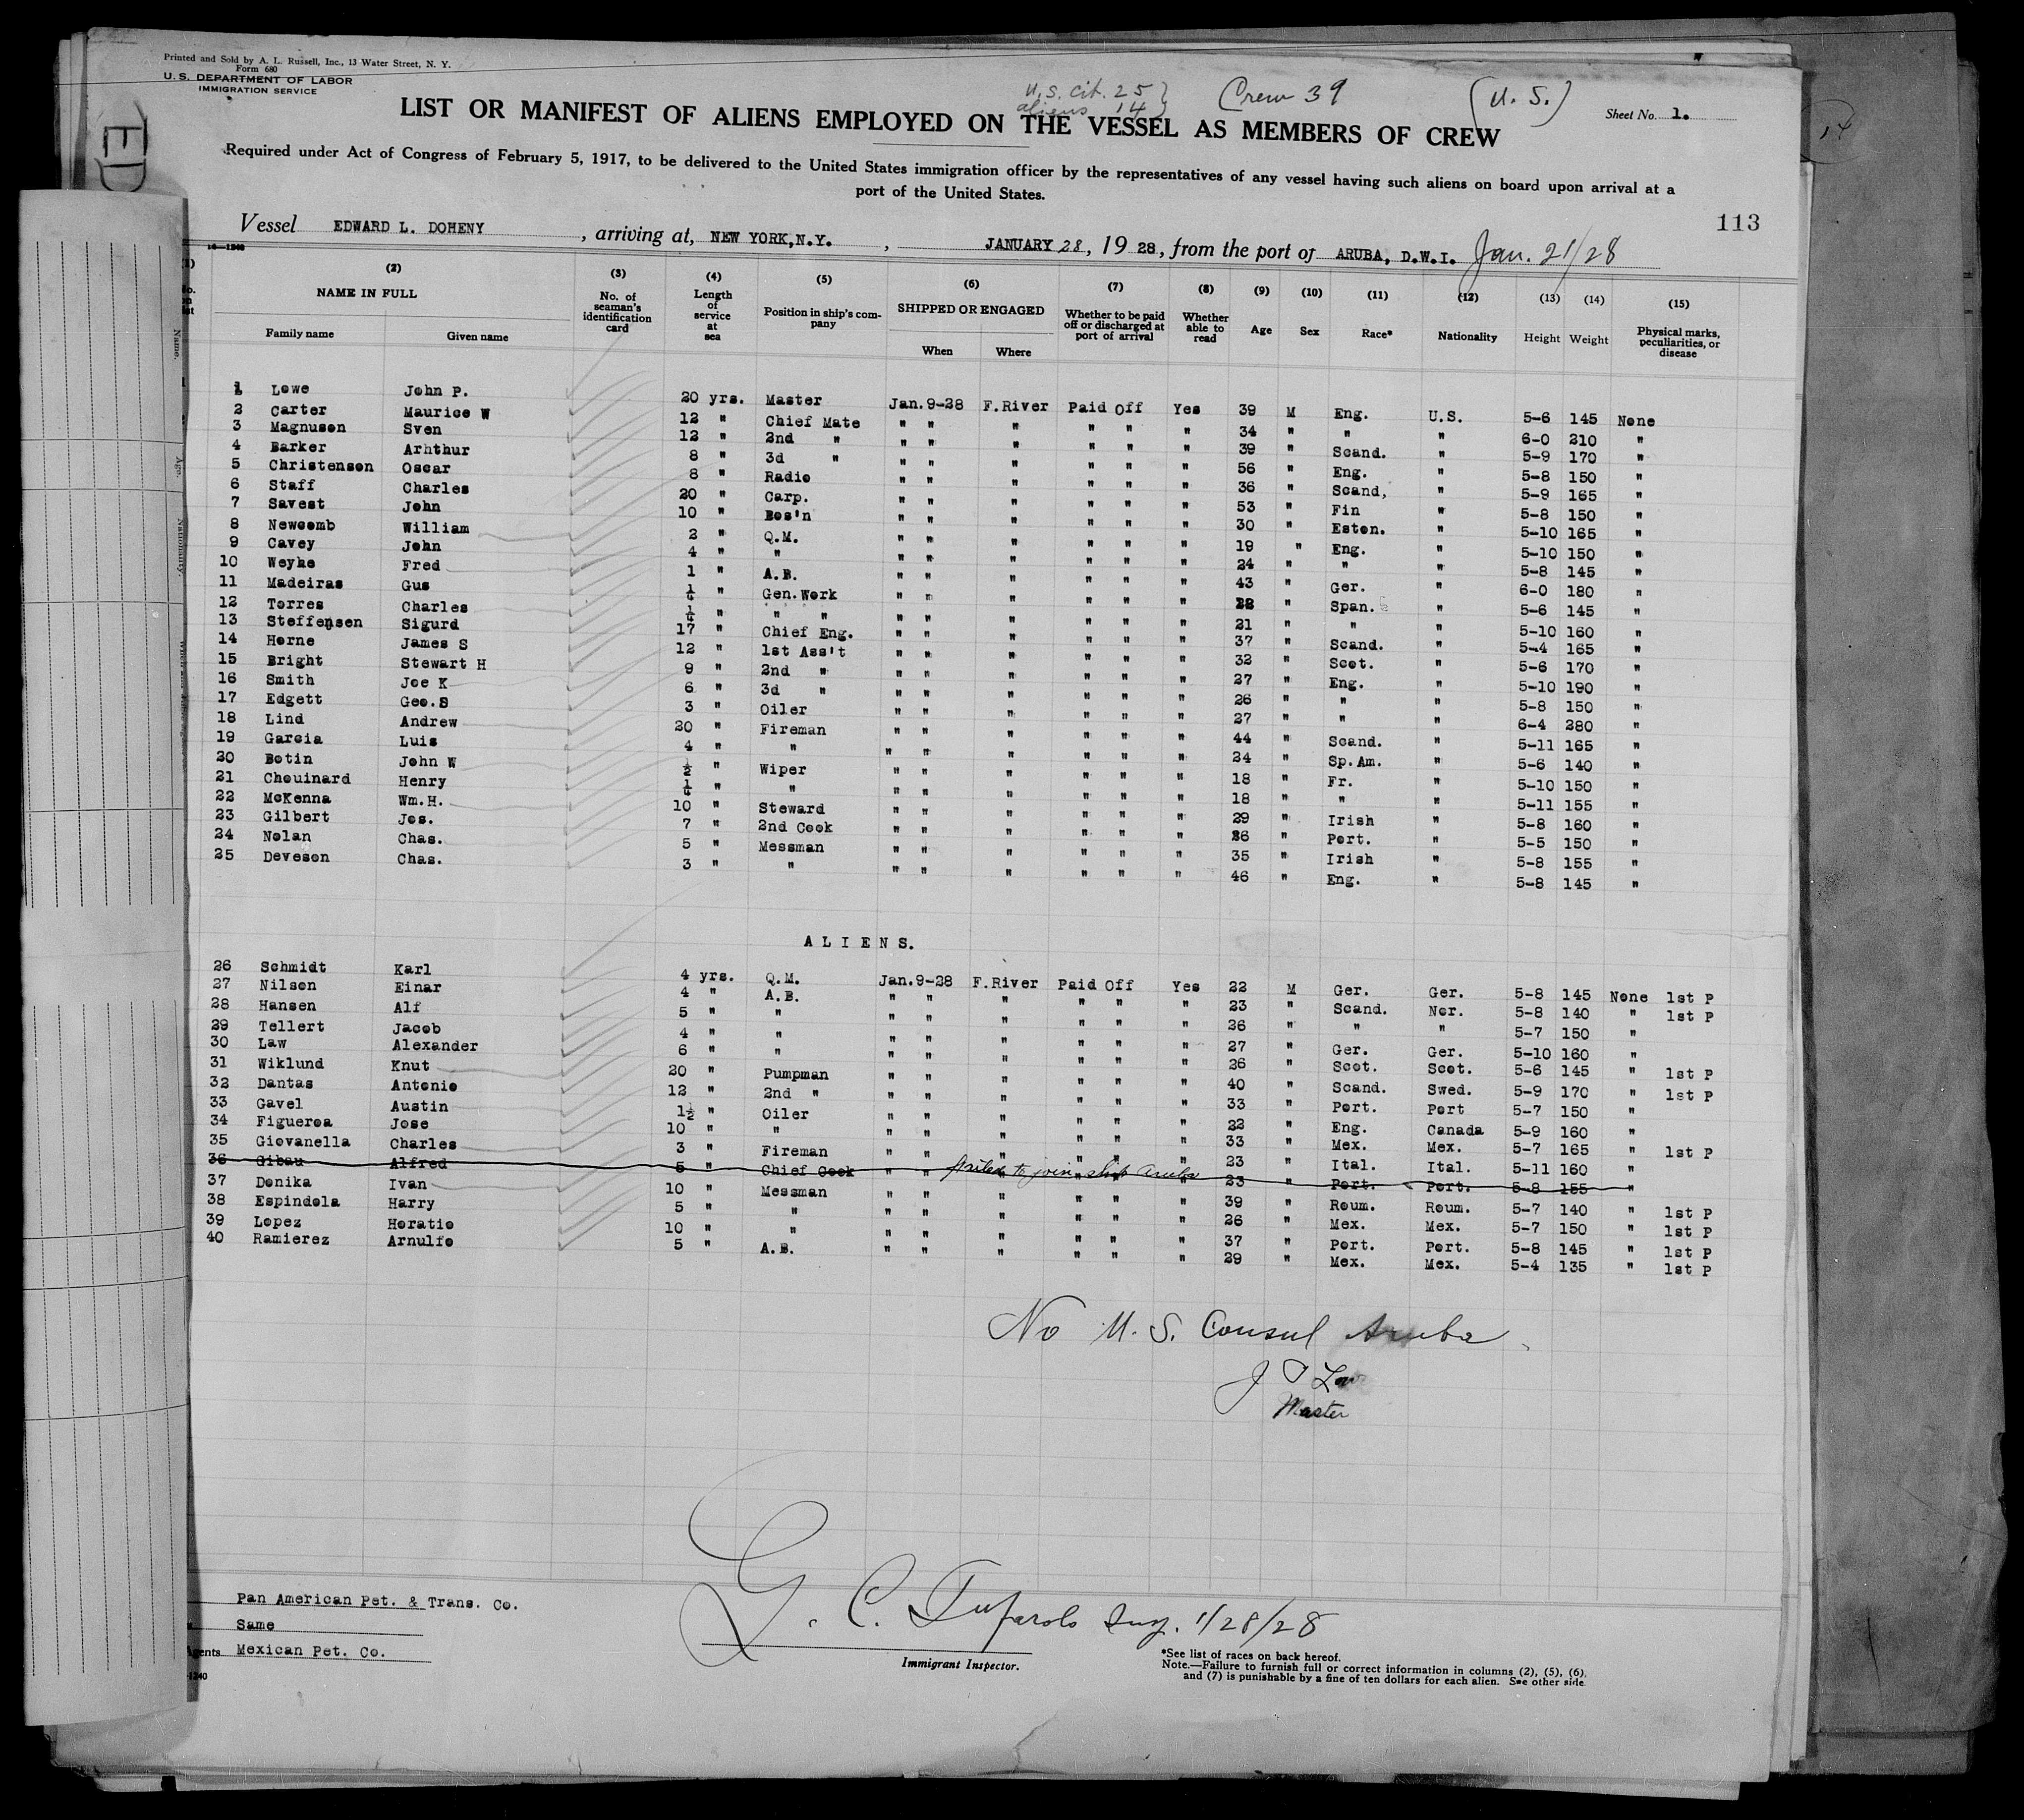 Printed and Sold by A. L. Russell, Inc., 13 Water Street, N. Y.
Form 680
U. S. DEPARTMENT OF LABOR
IMMIGRATION SERVICE
U.S. cit. 25 } Crew 39 (U. S.)
aliens 14 }
Sheet No. 1.
LIST OR MANIFEST OF ALIENS EMPLOYED ON THE VESSEL AS MEMBERS OF CREW
Required under Act of Congress of February 5, 1917, to be delivered to the United States immigration officer by the representatives of any vessel having such aliens on board upon arrival at a
port of the United States.
113
Vessel EDWARD L. DOHENY, arriving at, NEW YORK,N.Y. , JANUARY 28, 1928, from the port of ARUBA, D.W.I. Jan. 21/28
(2) (3) (4) (5) (6) (7) (8) (9) (10) (11) (12) (13) (14) (15)
NAME IN FULL Family name Given name No. of seaman's identification card Length of service at sea Position in ship's company SHIPPED OR ENGAGED When Where Whether to be paid off or discharged at port of arrival Whether able to read Age Sex Race* Nationality Height Weight Physical marks, peculiarities, or disease
1 Lowe John P. 20 yrs. Master Jan.9-28 F.River Paid Off Yes 39 M Eng. U.S. 5-6 145 None
2 Carter Maurice W 12 " Chief Mate " " " " " " 34 " " " 6-0 210 "
3 Magnuson Sven 12 " 2nd " " " " " " " 39 " Scand. " 5-9 170 "
4 Barker Arhthur 8 " 3d " " " " " " " 56 " Eng. " 5-8 150 "
5 Christenson Oscar 8 " Radio " " " " " " 36 " Scand, " 5-9 165 "
6 Staff Charles 20 " Carp. " " " " " " 53 " Fin " 5-8 150 "
7 Savest John 10 " Bos'n " " " " " " 30 " Eston. " 5-10 165 "
8 Newcomb William 2 " Q.M. " " " " " " 19 " Eng. " 5-10 150 "
9 Cavey John 4 " " " " " " " " 24 " " " 5-8 145 "
10 Weyhe Fred 1 " A.B. " " " " " " 43 " Ger. " 6-0 180 "
11 Madeiras Gus ¼ " Gen.Work " " " " " " 28 " Span. " 5-6 145 "
12 Torres Charles ¼ " " " " " " " " " 21 " " " 5-10 160 "
13 Steffensen Sigurd 17 " Chief Eng. " " " " " " 37 " Scand. " 5-4 165 "
14 Horne James S 12 " 1st Ass't " " " " " " 32 " Scot. " 5-6 170 "
15 Bright Stewart H 9 " 2nd " " " " " " " 27 " Eng. " 5-10 190 "
16 Smith Joe K 6 " 3d " " " " " " " 26 " " " 5-8 150 "
17 Edgett Geo.S 3 " Oiler " " " " " " 27 " " " 6-4 280 "
18 Lind Andrew 20 " Fireman " " " " " " 44 " Scand. " 5-11 165 "
19 Garcia Luis 4 " " " " " " " " 24 " Sp.Am. " 5-6 140 "
20 Botin John W ½ " Wiper " " " " " " 18 " Fr. " 5-10 150 "
21 Chouinard Henry ¼ " " " " " " " " 18 " " " 5-11 155 "
22 McKenna Wm.H. 10 " Steward " " " " " " 29 " Irish " 5-8 160 "
23 Gilbert Jos. 7 " 2nd Cook " " " " " " 26 " Port. " 5-5 150 "
24 Nolan Chas. 5 " Messman " " " " " " 35 " Irish " 5-8 155 "
25 Deveson Chas. 3 " " " " " " " " 46 " Eng. " 5-8 145 "
ALIENS.
26 Schmidt Karl 4 yrs. Q.M. Jan.9-28 F.River Paid Off Yes 22 M Ger. Ger. 5-8 145 None 1st P
27 Nilsen Einar 4 " A.B. " " " " " " 23 " Scand. Nor. 5-8 140 " 1st P
28 Hansen Alf 5 " " " " " " " " 26 " " " 5-7 150 "
29 Tellert Jacob 4 " " " " " " " " 27 " Ger. Ger. 5-10 160 "
30 Law Alexander 6 " " " " " " " " 26 " Scot. Scot. 5-6 145 " 1st P
31 Wiklund Knut 20 " Pumpman " " " " " " 40 " Scand. Swed. 5-9 170 " 1st P
32 Dantas Antonio 12 " 2nd " " " " " " " 33 " Port. Port 5-7 150 "
33 Gavel Austin 1½ " Oiler " " " " " " 22 " Eng. Canada 5-9 160 "
34 Figueroa Jose 10 " " " " " " " " 33 " Mex. Mex. 5-7 165 " 1st P
35 Giovanella Charles 3 " Fireman " " " " " " 23 " Ital. Ital. 5-11 160 "
36 Gibau Alfred 5 " Chief Cook " " failed to join ship Aruba " 23 " Port. Port. 5-8 155 "
37 Donika Ivan 10 " Messman " " " " " " 39 " Roum. Roum. 5-7 140 " 1st P
38 Espindola Harry 5 " " " " " " " " 26 " Mex. Mex. 5-7 150 " 1st P
39 Lopez Horatio 10 " " " " " " " " 37 " Port. Port. 5-8 145 " 1st P
40 Ramierez Arnulfo 5 " A.B. " " " " " " 29 " Mex. Mex. 5-4 135 " 1st P
No U. S. Consul Aruba
J P Low
Master
Pan American Pet. & Trans. Co.
Same
Agents Mexican Pet. Co.
G. C. Insp. 1/28/28
Immigrant Inspector.
*See list of races on back hereof.
Note.—Failure to furnish full or correct information in columns (2), (5), (6),
and (7) is punishable by a fine of ten dollars for each alien. See other side